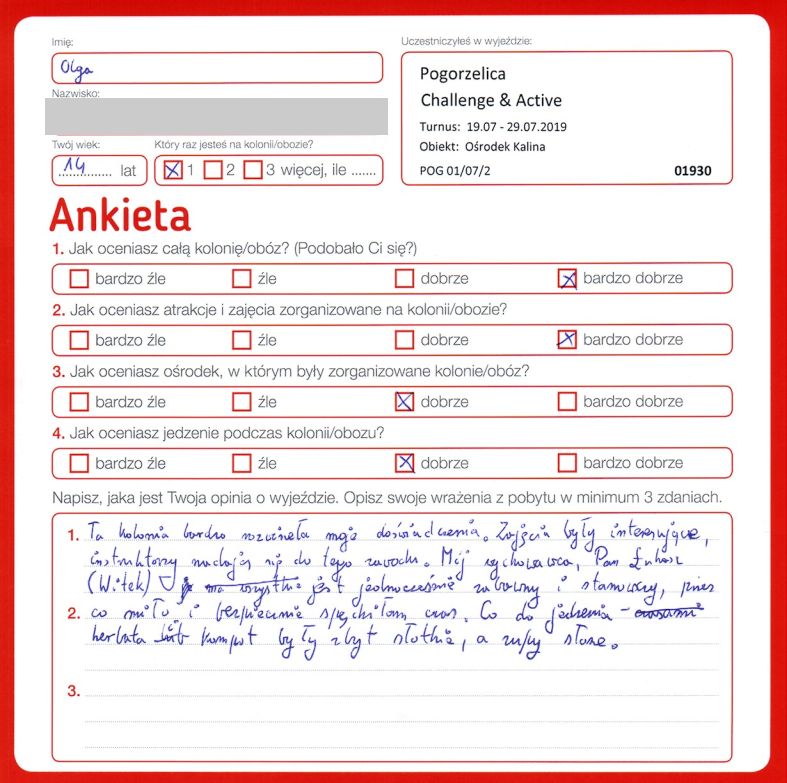 Imię:
Uczestniczyłeś w wyjeździe:
Olga
Pogorzelica
Challenge & Active
Nazwisko:
Turnus: 19.07 - 29.07.2019
Obiekt: Ośrodek Kalina
Twój wiek:
Który raz jesteś na kolonii/obozie?
14 lat
1 2 3 więcej, ile .......
POG 01/07/2 01930
Ankieta
1. Jak oceniasz całą kolonię/obóz? (Podobało Ci się?)
bardzo źle źle dobrze bardzo dobrze
2. Jak oceniasz atrakcje i zajęcia zorganizowane na kolonii/obozie?
bardzo źle źle dobrze bardzo dobrze
3. Jak oceniasz ośrodek, w którym były zorganizowane kolonie/obóz?
bardzo źle źle dobrze bardzo dobrze
4. Jak oceniasz jedzenie podczas kolonii/obozu?
bardzo źle źle dobrze bardzo dobrze
Napisz, jaka jest Twoja opinia o wyjeździe. Opisz swoje wrażenia z pobytu w minimum 3 zdaniach.
1. Ta kolonia bardzo moje doświadczenia. Zajęcia były interesujące,
instruktorzy nadają się do tego zawodu. Mój wychowawca, Pan Łukasz
(Witek) ma wszystko jest jednocześnie zabawny i stanowczy, przez
2. co miło i bezpiecznie spędziłam czas. Co do jedzenia - czasami
herbata lub kompot były zbyt słodkie, a zupy słone.
3.